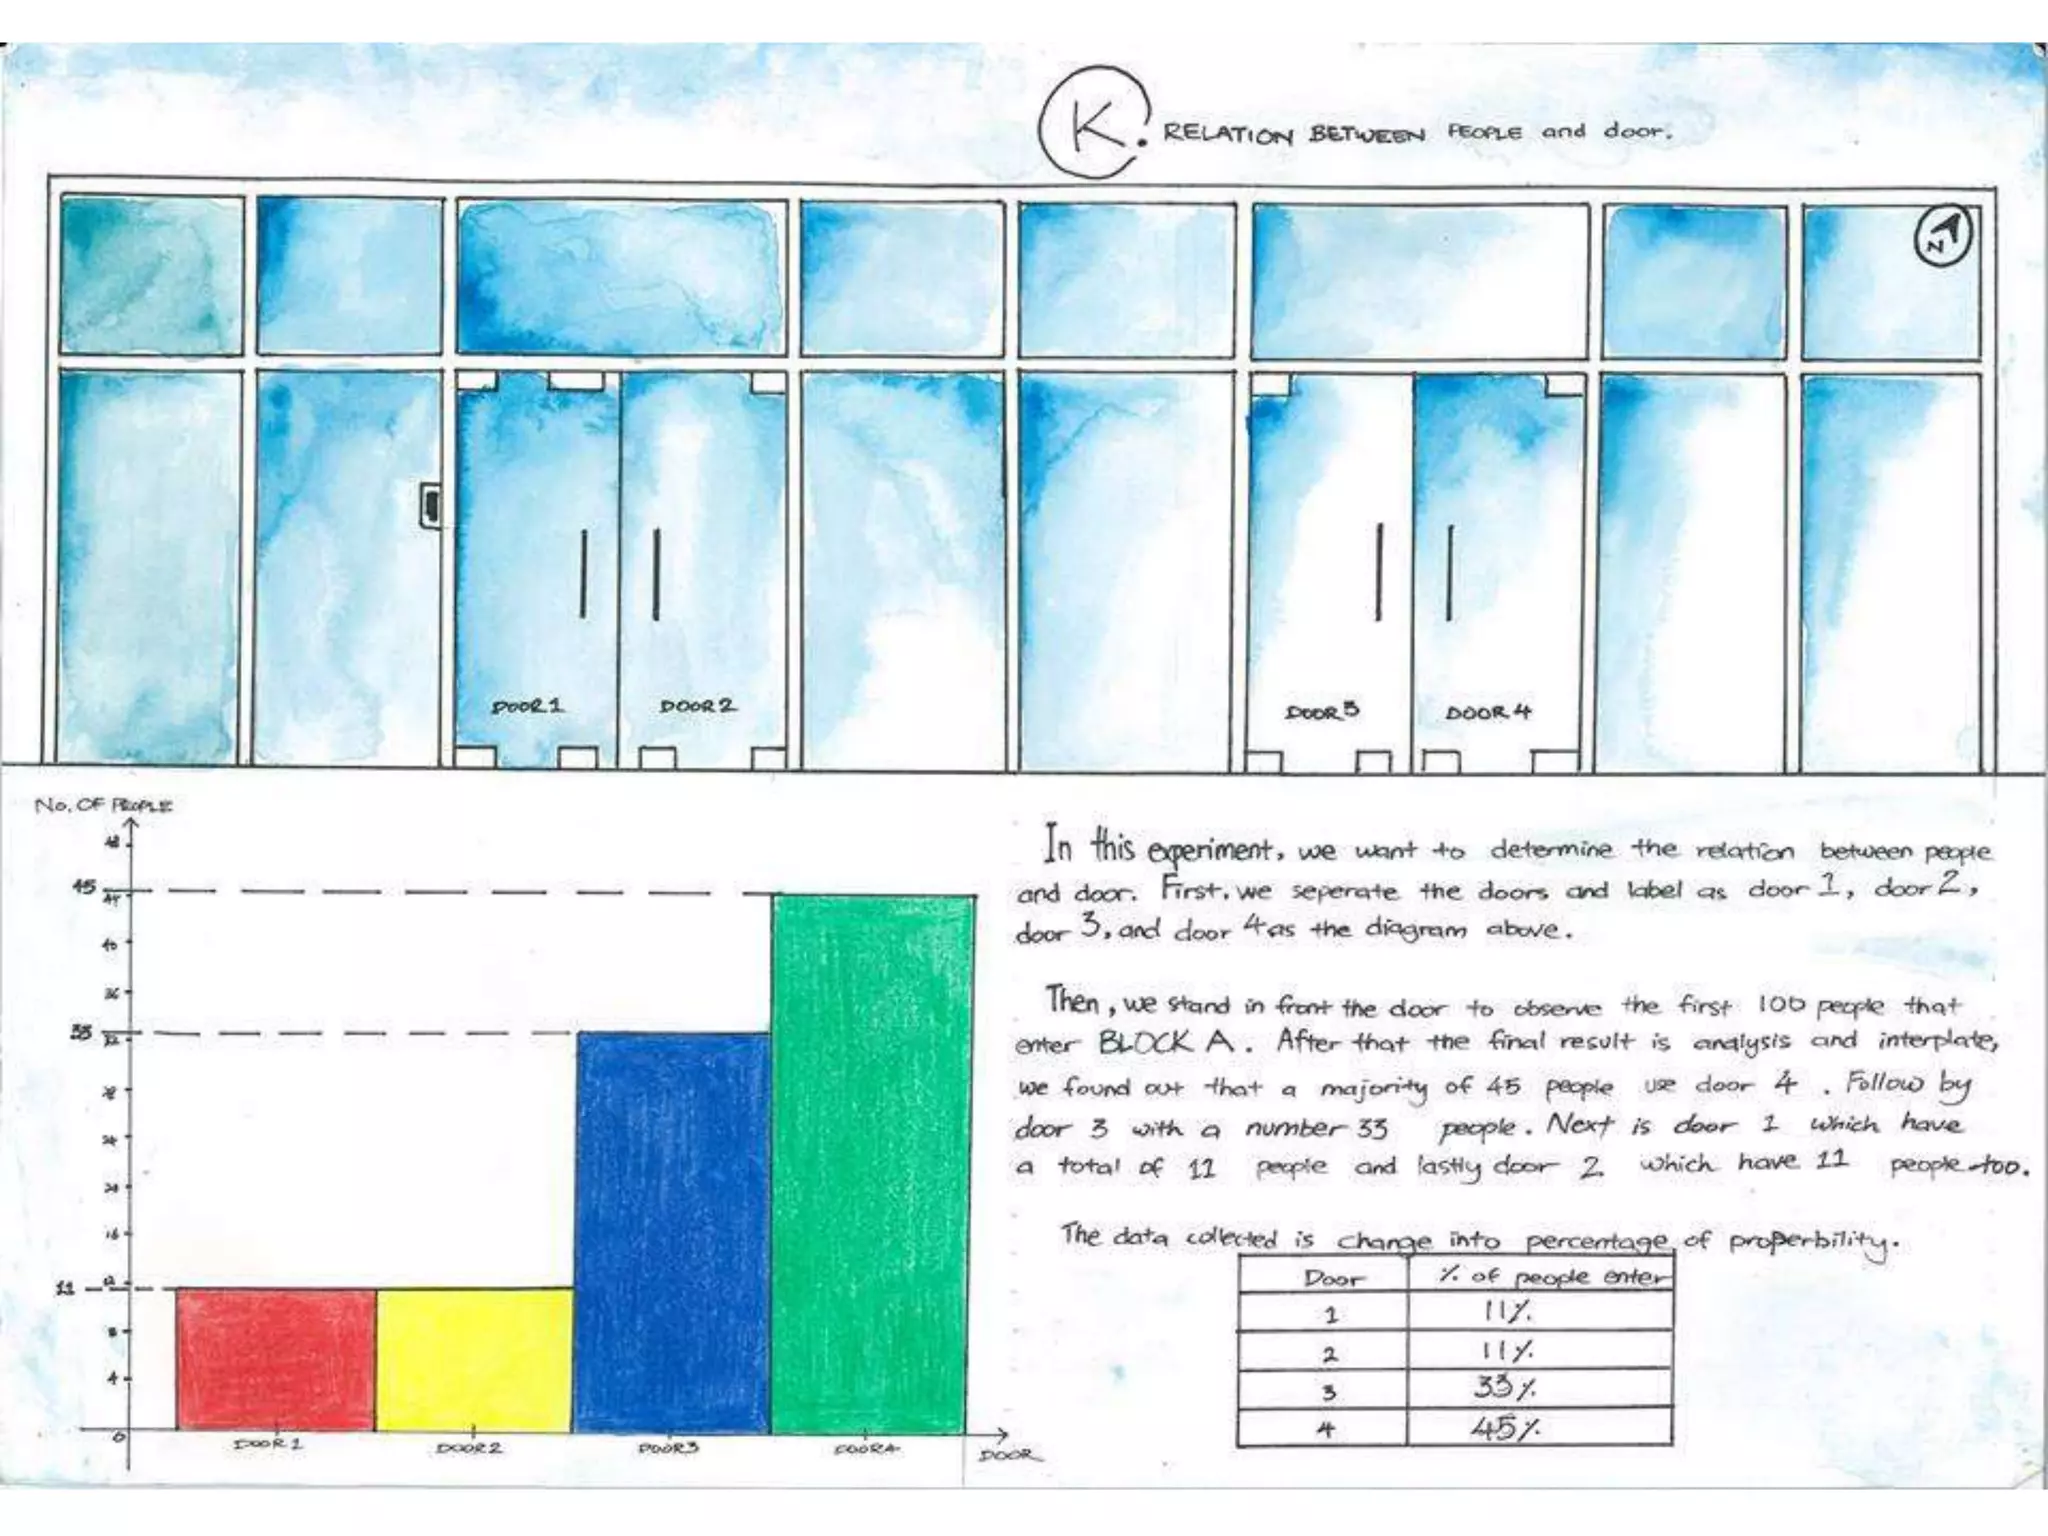 K. RELATION BETWEEN PEOPLE and door.
N
DOOR1 DOOR2 DOOR3 DOOR4
No. OF PEOPLE
48
45
44
40
36
33
32
28
24
20
16
12
11
8
4
0
DOOR1 DOOR2 DOOR3 DOOR4 DOOR
In this experiment, we want to determine the relation between people
and door. First, we seperate the doors and label as door 1, door 2,
door 3, and door 4 as the diagram above.
Then, we stand in front the door to observe the first 100 people that
enter BLOCK A. After that the final result is analysis and interplate,
we found out that a majority of 45 people use door 4. Follow by
door 3 with a number 33 people. Next is door 1 which have
a total of 11 people and lastly door 2 which have 11 people too.
The data collected is change into percentage of properbility.
Door % of people enter
1 11%
2 11%
3 33%
4 45%